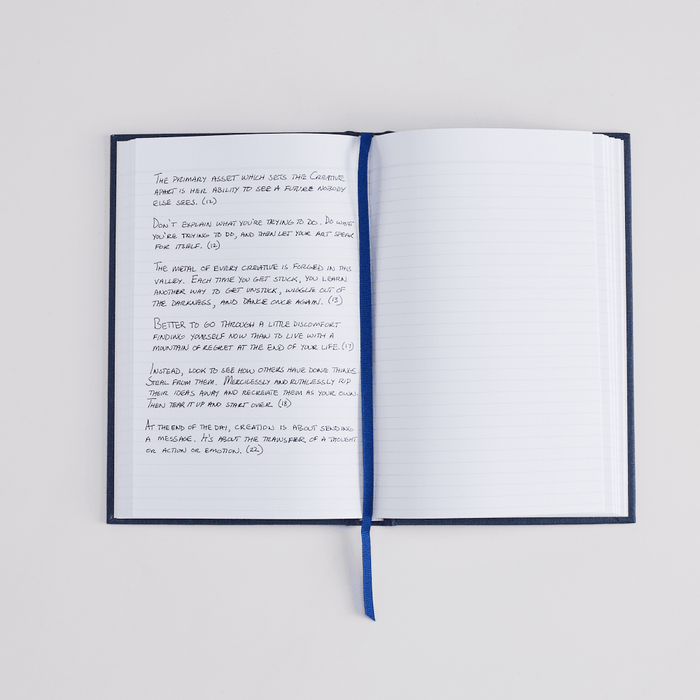 The primary asset which sets the Creative
apart is her ability to see a future nobody
else sees. (12)
Don't explain what you're trying to do. Do what
you're trying to do, and then let your art speak
for itself. (12)
The metal of every creative is forged in this
valley. Each time you get stuck, you learn
another way to get unstuck, wiggle out of
the darkness, and dance once again. (13)
Better to go through a little discomfort
finding yourself now than to live with a
mountain of regret at the end of your life. (17)
Instead, look to see how others have done things.
Steal from them. Mercilessly and ruthlessly rip
their ideas away and recreate them as your own.
Then tear it up and start over. (18)
At the end of the day, creation is about sending
a message. It's about the transfer of a thought
or action or emotion. (22)